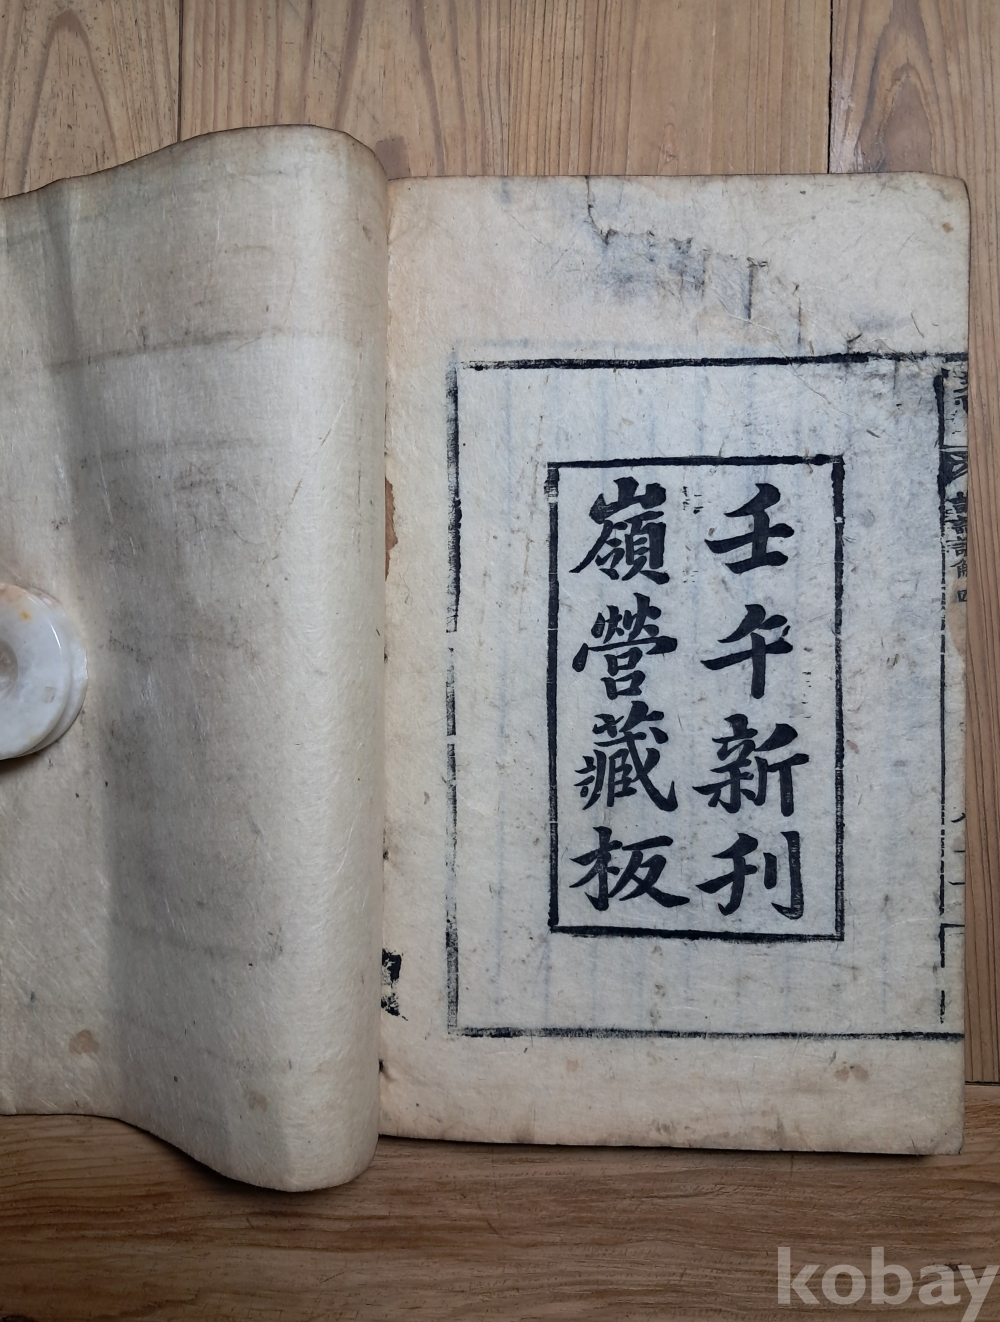 壬午新刊
嶺營藏板
kobay